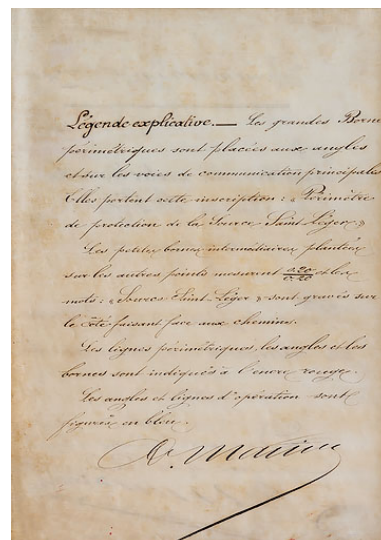 Légende explicative. — Les grandes Borne
périmétriques sont placées aux angles
et sur les voies de communication principales
Elles portent cette inscription : « Périmètre
de protection de la Source Saint-Léger »
Les petites bornes intermédiaires plantées
sur les autres points mesurent 0.20/0.20 et les
mots : « Source Saint-Léger » sont gravés sur
le côté faisant face aux chemins.
Les lignes périmétriques, les angles et les
bornes sont indiqués à l'encre rouge.
Les angles et lignes d'opération sont
figurés en bleu.